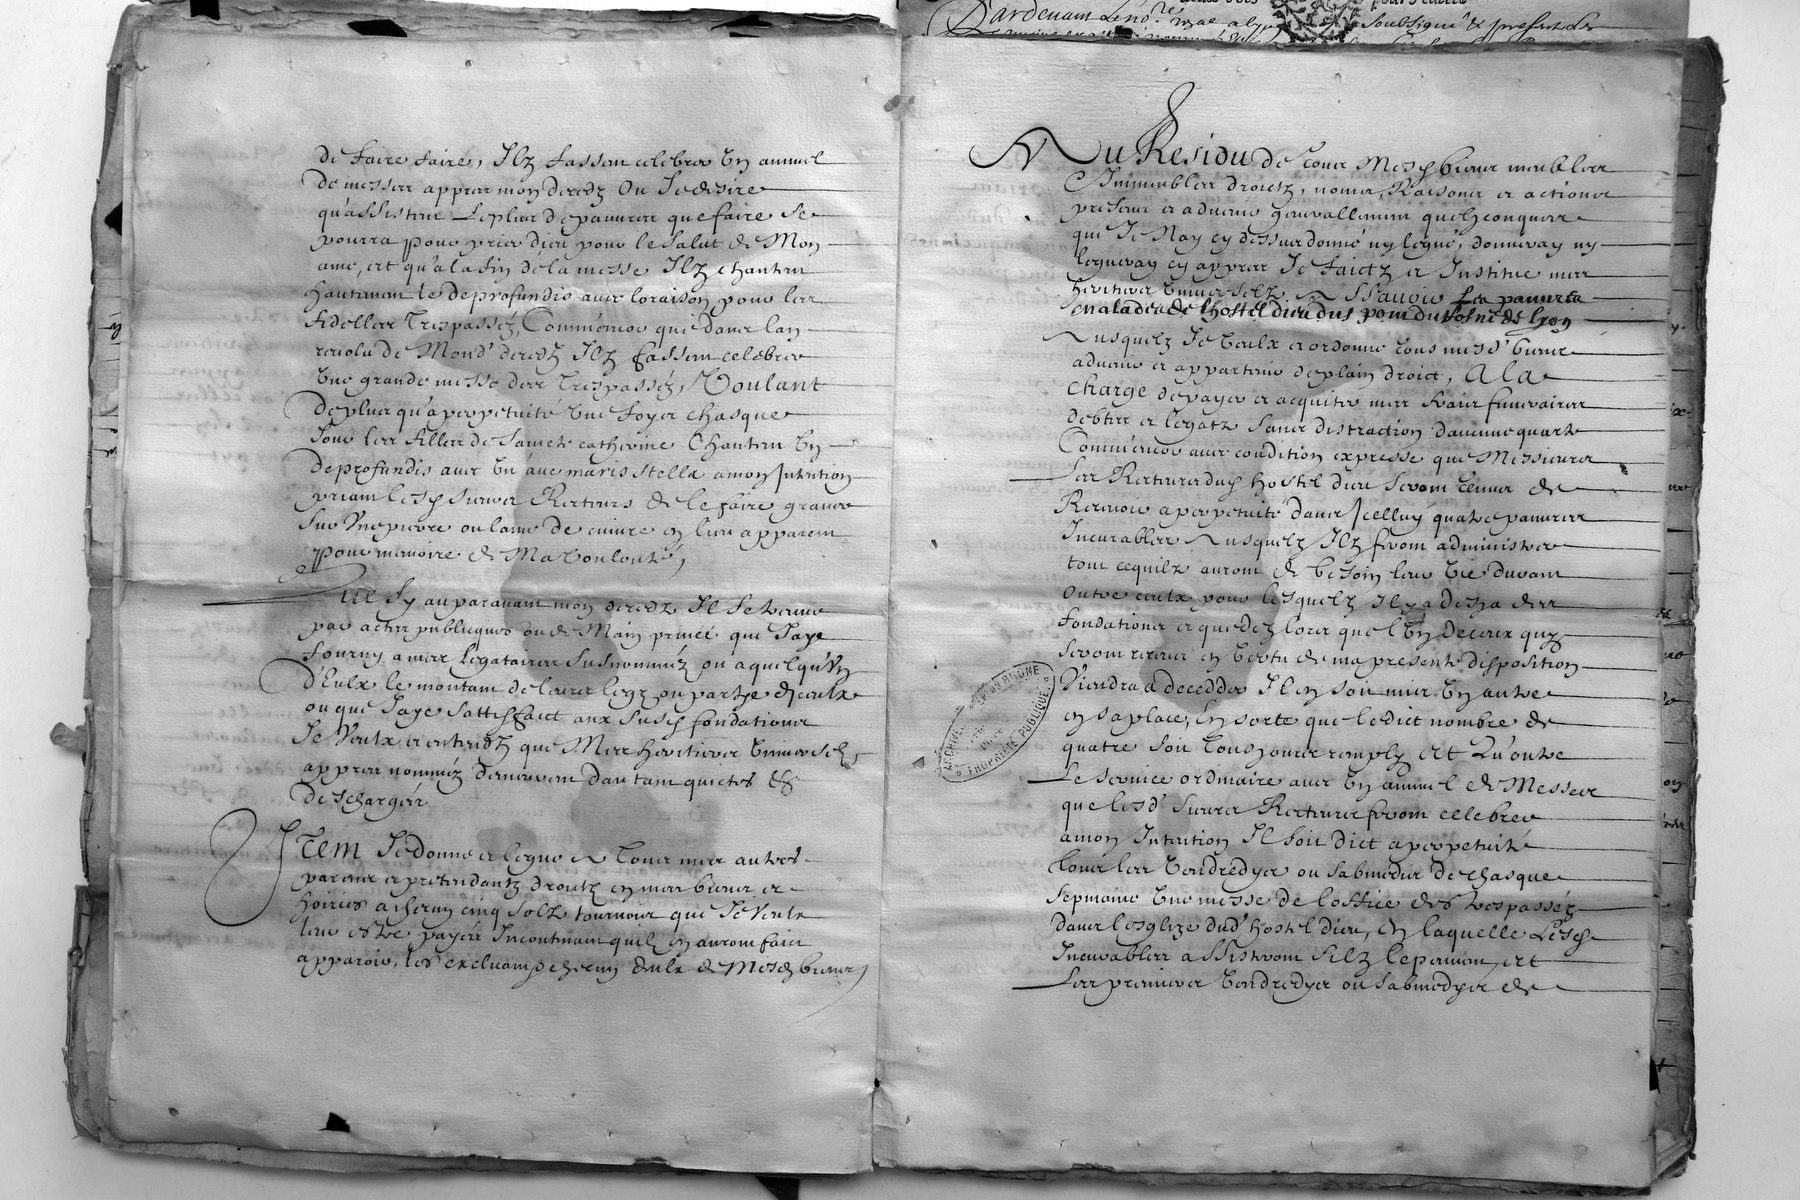 de faire faire, Ilz fassent celebrer un annuel
de messes apprez mon decedz Ou Je desire
qu'assistent Le plus de pauvres que faire se
pourra pour prier dieu pour le salut de Mon
ame, et qu'a la fin de la messe Ilz chantent
hautement le deprofundis avec loraison pour les
fidelles Trespassez, Comm'encor que dans lan
revolu de Mond' decedz Ilz fassent celebrer
Une grande messe des Trespassez, Voulant
de plus qu'a perpetuité Une foys chasque
Jour les filles de saincte catherine Chantent Un
deprofundis avec Un ave maris stella a mon Intention
priant lesd sieurs Recteurs de le faire graver
sur Une pierre ou lame de cuivre en lieu apparent
pour memoire de Ma Volonté,
Que sy auparavant mon decedz Il se treuve
par actes publiques ou de Main privée que J'aye
fourny a mes legataires susnommez ou a quelqu'Un
D'Eulx le montant de leurs legz ou partye d'iceulx
ou que J'aye sattisfaict aux susd fondations
Je Veulx et entendz que Mes heritiers Universelz
apprez nommez demeurent d'autant quictes &
deschargés
Item Je donne et legue A Tous mes autres
parens et pretendantz droictz en mes biens et
hoiries a chacun cinq solz tournois que Je Veulx
leur estre payés Incontinant quilz en auront faict
apparoir, les excluant de chacun d'eulx de Mesd biens,
Au Residu de tous Mesd biens meubles
Immeubles droictz, noms, Raisons et actions
presens et advenir generallement quelzconques
que Je N'ay cy dessus donné ny legué, donneray ny
legueray cy apprez Je faictz et Institue mes
heritiers Universelz A SSavoir Les pauvres
malades de l'hostel dieu du pont du Rosne de lyon
Ausquelz Je Veulx et ordonne tous mesd' biens
advenir et appartenir de plain droict, A la
charge de payer et acquiter mes fraiz funeraires
debtes et legatz sans distraction d'aucune quarte
Comm'encor avec condition expresse que Messieurs
Les Recteurs dud hostel dieu seront tenus de
Recevoir a perpetuité dans Icelluy quatre pauvres
Incurables Ausquelz Ilz feront administrer
tout ce quilz auront de besoin leur Vie durant
outre ceulx pour lesquelz Il y a desja des
fondations et que dez lors que l'Un de ceux quy
seront receus en Vertu de ma presente disposition
Viendra a decedder Il en soit mis Un autre
en sa place, En sorte que le dict nombre de
quatre soit tousjours remply Et Qu'outre
Le service ordinaire avec Un annuel de Messes
que lesd' sieurs Recteurs feront celebrer
a mon Intention Il soit dict a perpetuité
tous les Vendredys ou sabmedis de chasque
sepmaine Une messe de l'office des trespassez
dans l'esglize dud' hostel dieu, En laquelle Lesd
Incurables assisteront s'ilz le peuvent, et
Les premiers Vendredys ou sabmedys de
ARCHIVES DEP. DU RHONE
PROPRIÉTÉ PUBLIQUE